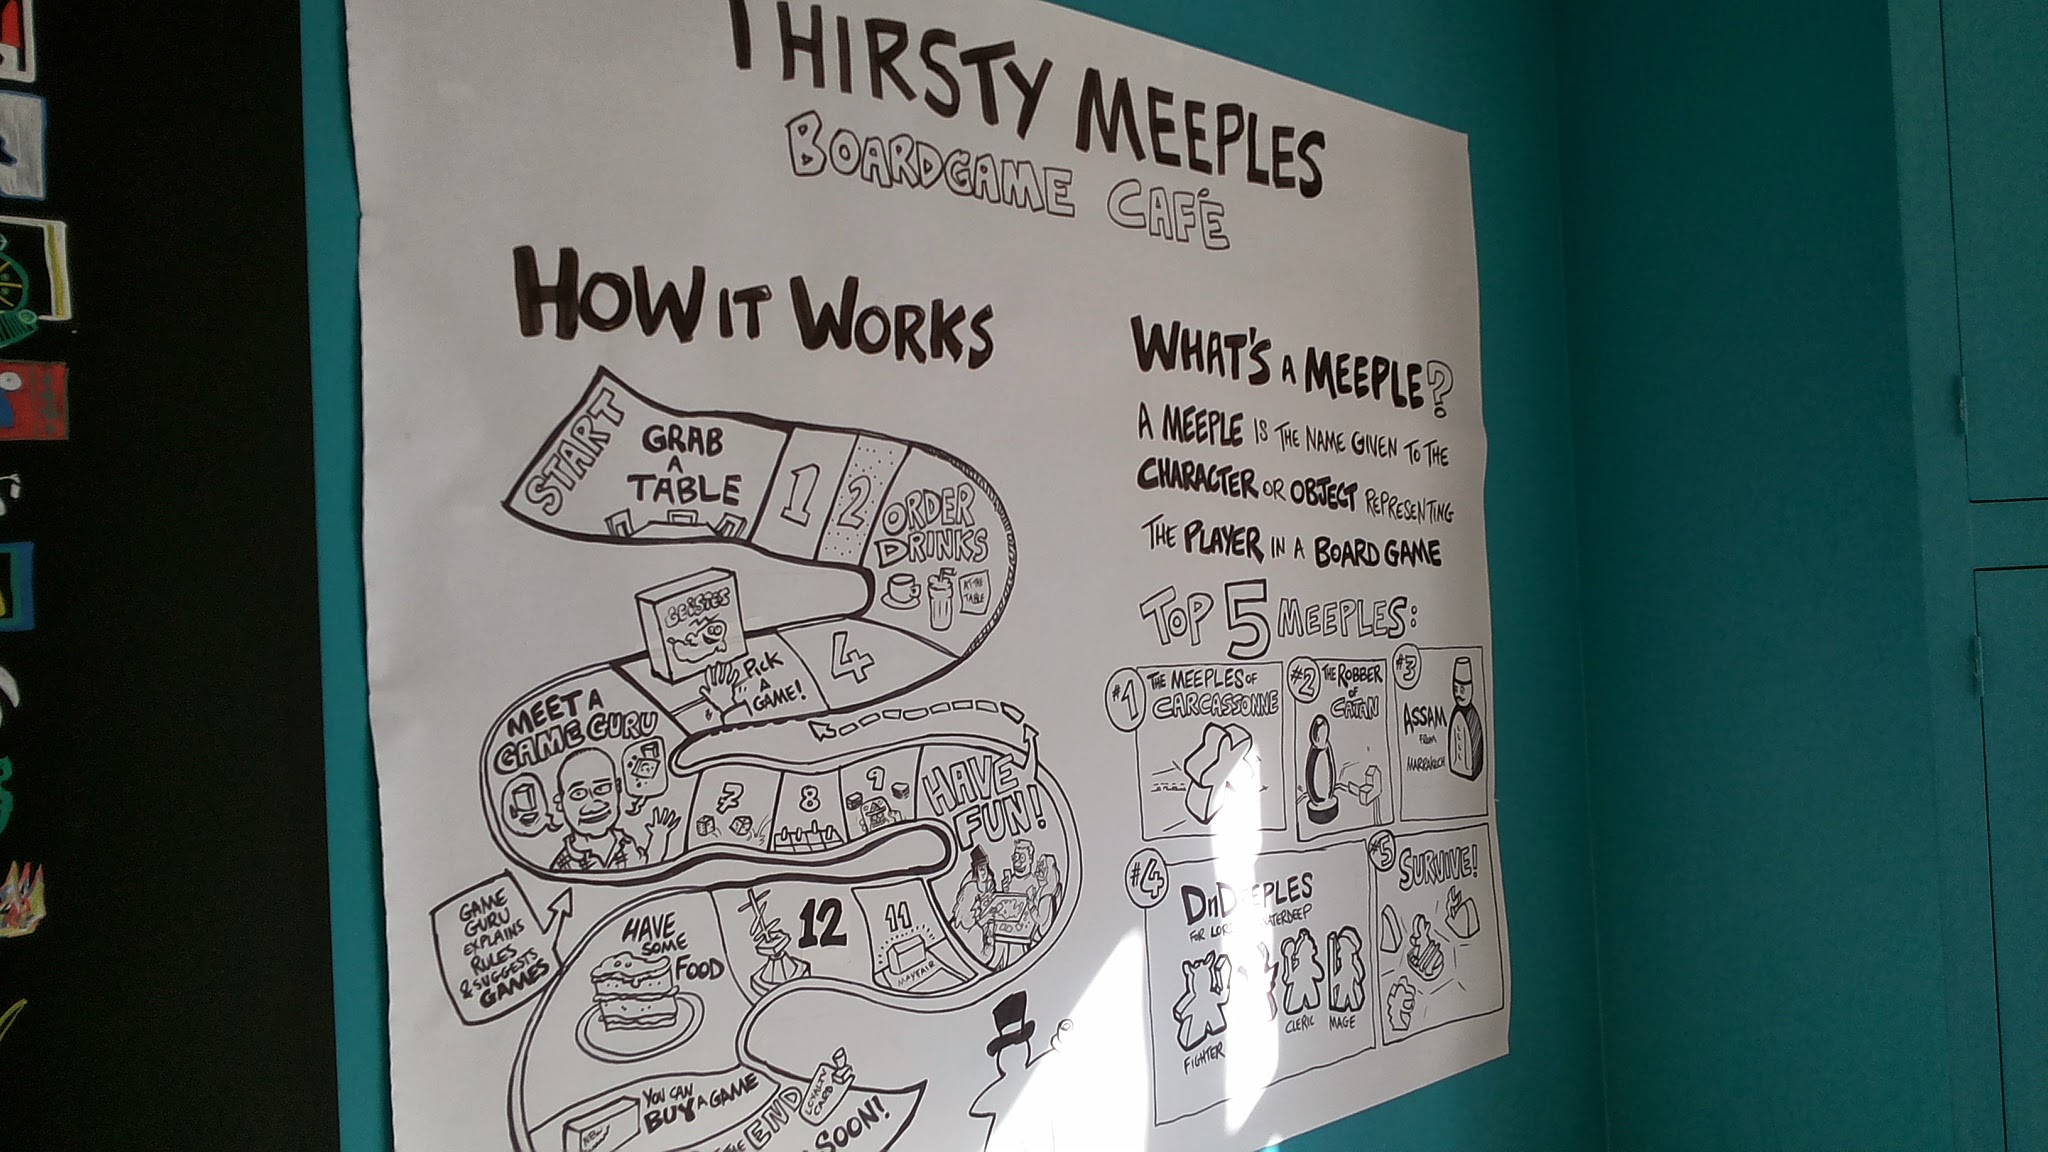 THIRSTY MEEPLES
BOARDGAME CAFÉ
HOW IT WORKS
START
GRAB
A
TABLE
1
2
ORDER
DRINKS
AT THE
TABLE
4
PICK
A
GAME!
GEISTES
MEET A
GAME GURU
GAME
GURU
EXPLAINS
RULES
& SUGGESTS
GAMES
7
8
9
HAVE
FUN!
11
MAYFAIR
12
HAVE
SOME
FOOD
YOU CAN
BUY A GAME
NEW
THE END
LOYALTY
CARD
SOON!
WHAT'S A MEEPLE?
A MEEPLE IS THE NAME GIVEN TO THE
CHARACTER OR OBJECT REPRESENTING
THE PLAYER IN A BOARD GAME
TOP 5 MEEPLES:
#1
THE MEEPLES OF
CARCASSONNE
#2
THE ROBBER
OF
CATAN
#3
ASSAM
FROM
MARRAKECH
#4
DnDEEPLES
FOR
FIGHTER
CLERIC
MAGE
#5
SURVIVE!